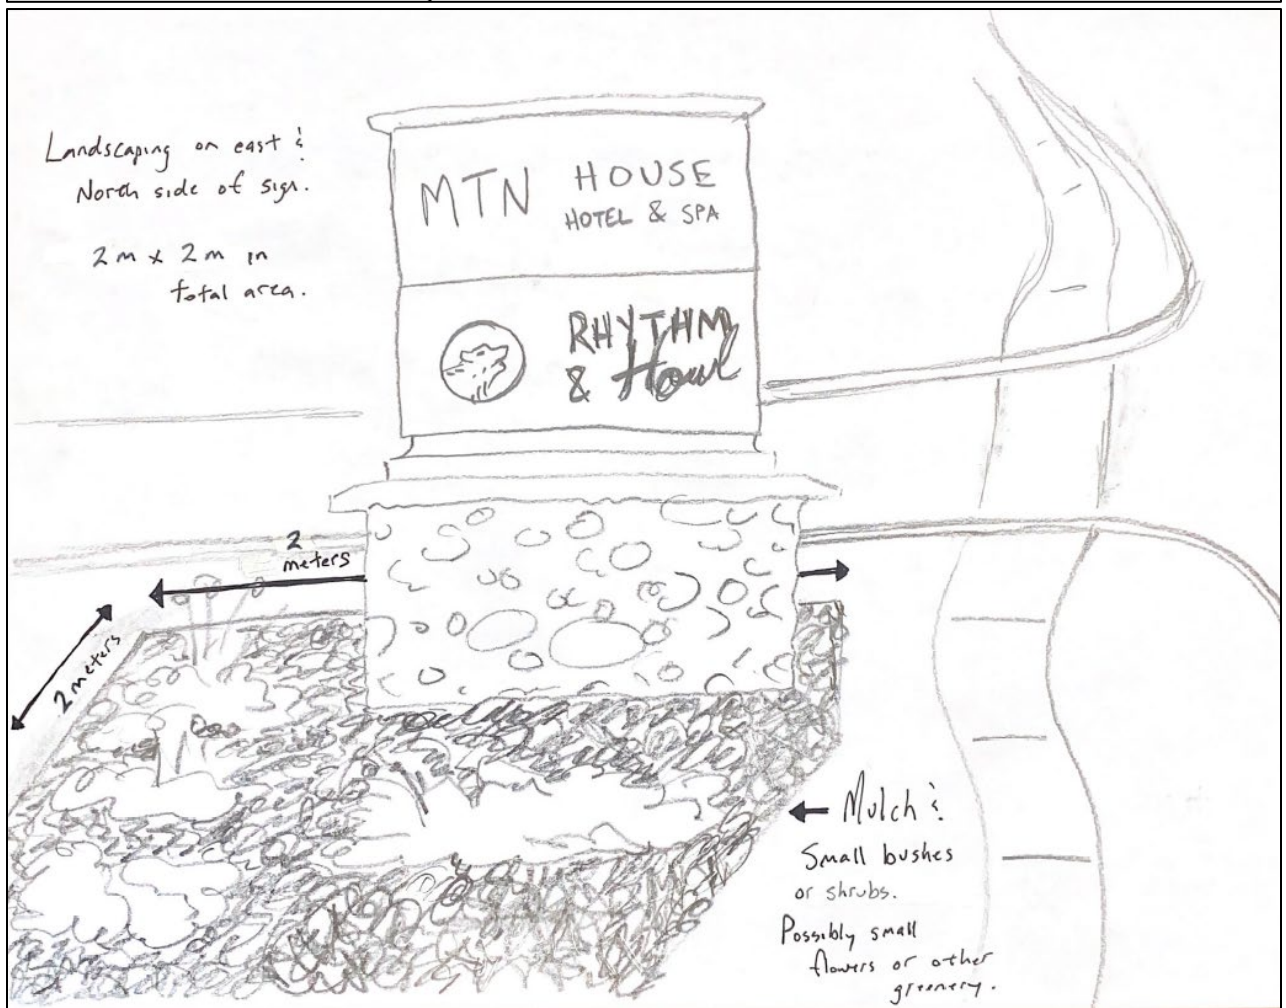 Landscaping on east &
North side of sign.
2 m x 2 m in
total area.
MTN HOUSE
HOTEL & SPA
RHYTHM
& Howl
2
meters
2 meters
Mulch &
Small bushes
or shrubs.
Possibly small
flowers or other
greenery.